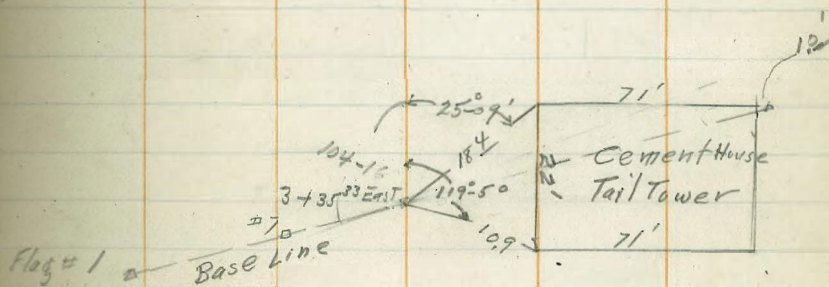 1.0'
71'
25°-09'
184
104-16
22'
Cement House
Tail Tower
3+35 33 East
119°-50
#7
10.9
71'
Flag #1
Base Line